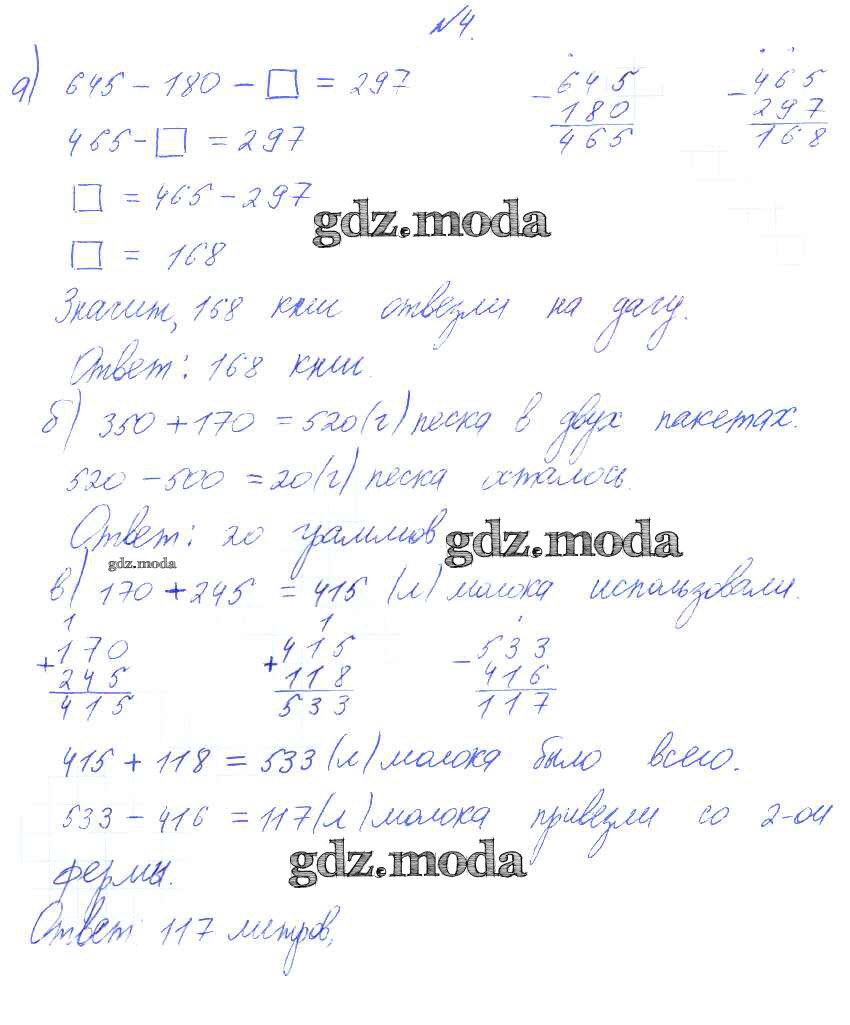 №4.
а) 645 – 180 – □ = 297
465 – □ = 297
□ = 465 – 297
□ = 168
– 645
180
465
– 465
297
168
gdz.moda
Значит, 168 книг отвезли на дачу.
Ответ: 168 книг.
б) 350 + 170 = 520 (г) песка в двух пакетах.
520 – 500 = 20 (г) песка осталось.
Ответ: 20 граммов
gdz.moda
gdz.moda
в) 170 + 245 = 415 (л) молока использовали.
1
+ 170
245
415
1
+ 415
118
533
– 533
416
117
415 + 118 = 533 (л) молока было всего.
533 – 416 = 117 (л) молока привезли со 2-ой
фермы.
gdz.moda
Ответ: 117 литров,